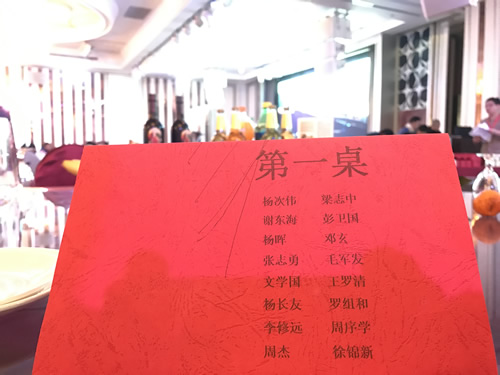 第一桌
杨次伟 梁志中
谢东海 彭卫国
杨晖 邓玄
张志勇 毛军发
文学国 王罗清
杨长友 罗组和
李修远 周序学
周杰 徐锦新